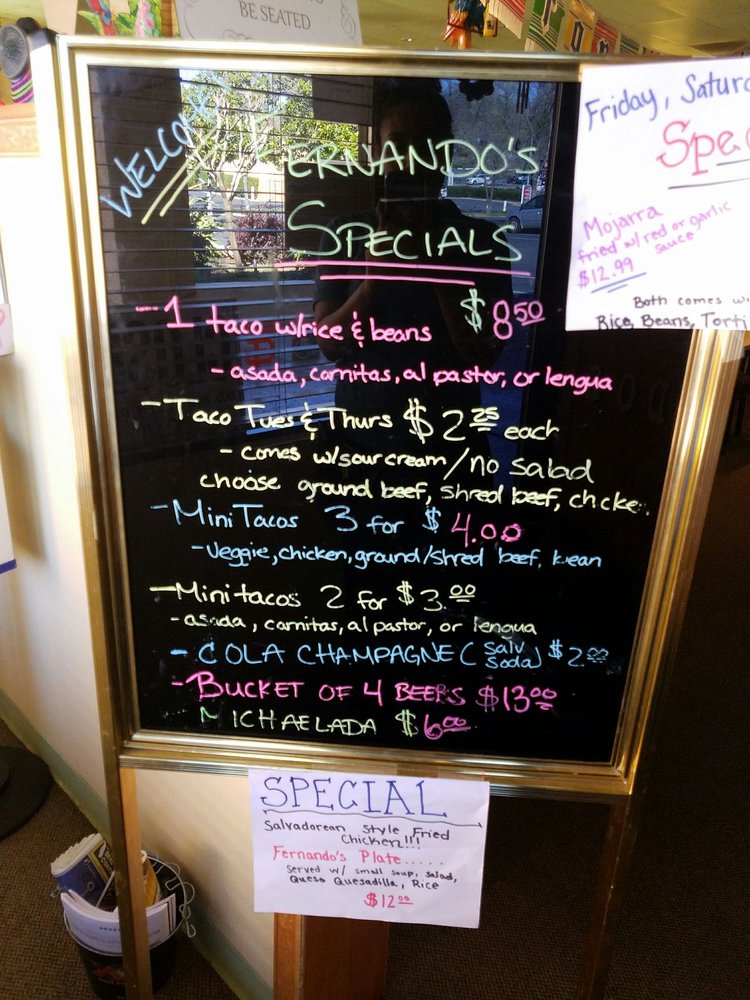 BE SEATED
WELCOME
FERNANDO'S
SPECIALS
- 1 taco w/rice & beans $8.50
- asada, carnitas, al pastor, or lengua
- Taco Tues & Thurs $2.25 each
- comes w/sour cream/no salad
choose ground beef, shred beef, chcken
- Mini Tacos 3 for $4.00
- veggie, chicken, ground/shred beef, bean
- Mini tacos 2 for $3.00
- asada, carnitas, al pastor, or lengua
- COLA CHAMPAGNE (Salv soda) $2.00
- BUCKET OF 4 BEERS $13.00
MICHAELADA $6.00
Friday, Satur
Spec
Mojarra
fried w/red or garlic
sauce
$12.99
Both comes w
Rice, Beans, Torti
SPECIAL
Salvadorean style Fried
Chicken!!!
Fernando's Plate.....
Served w/ small soup, salad,
Queso Quesadilla, Rice
$12.00